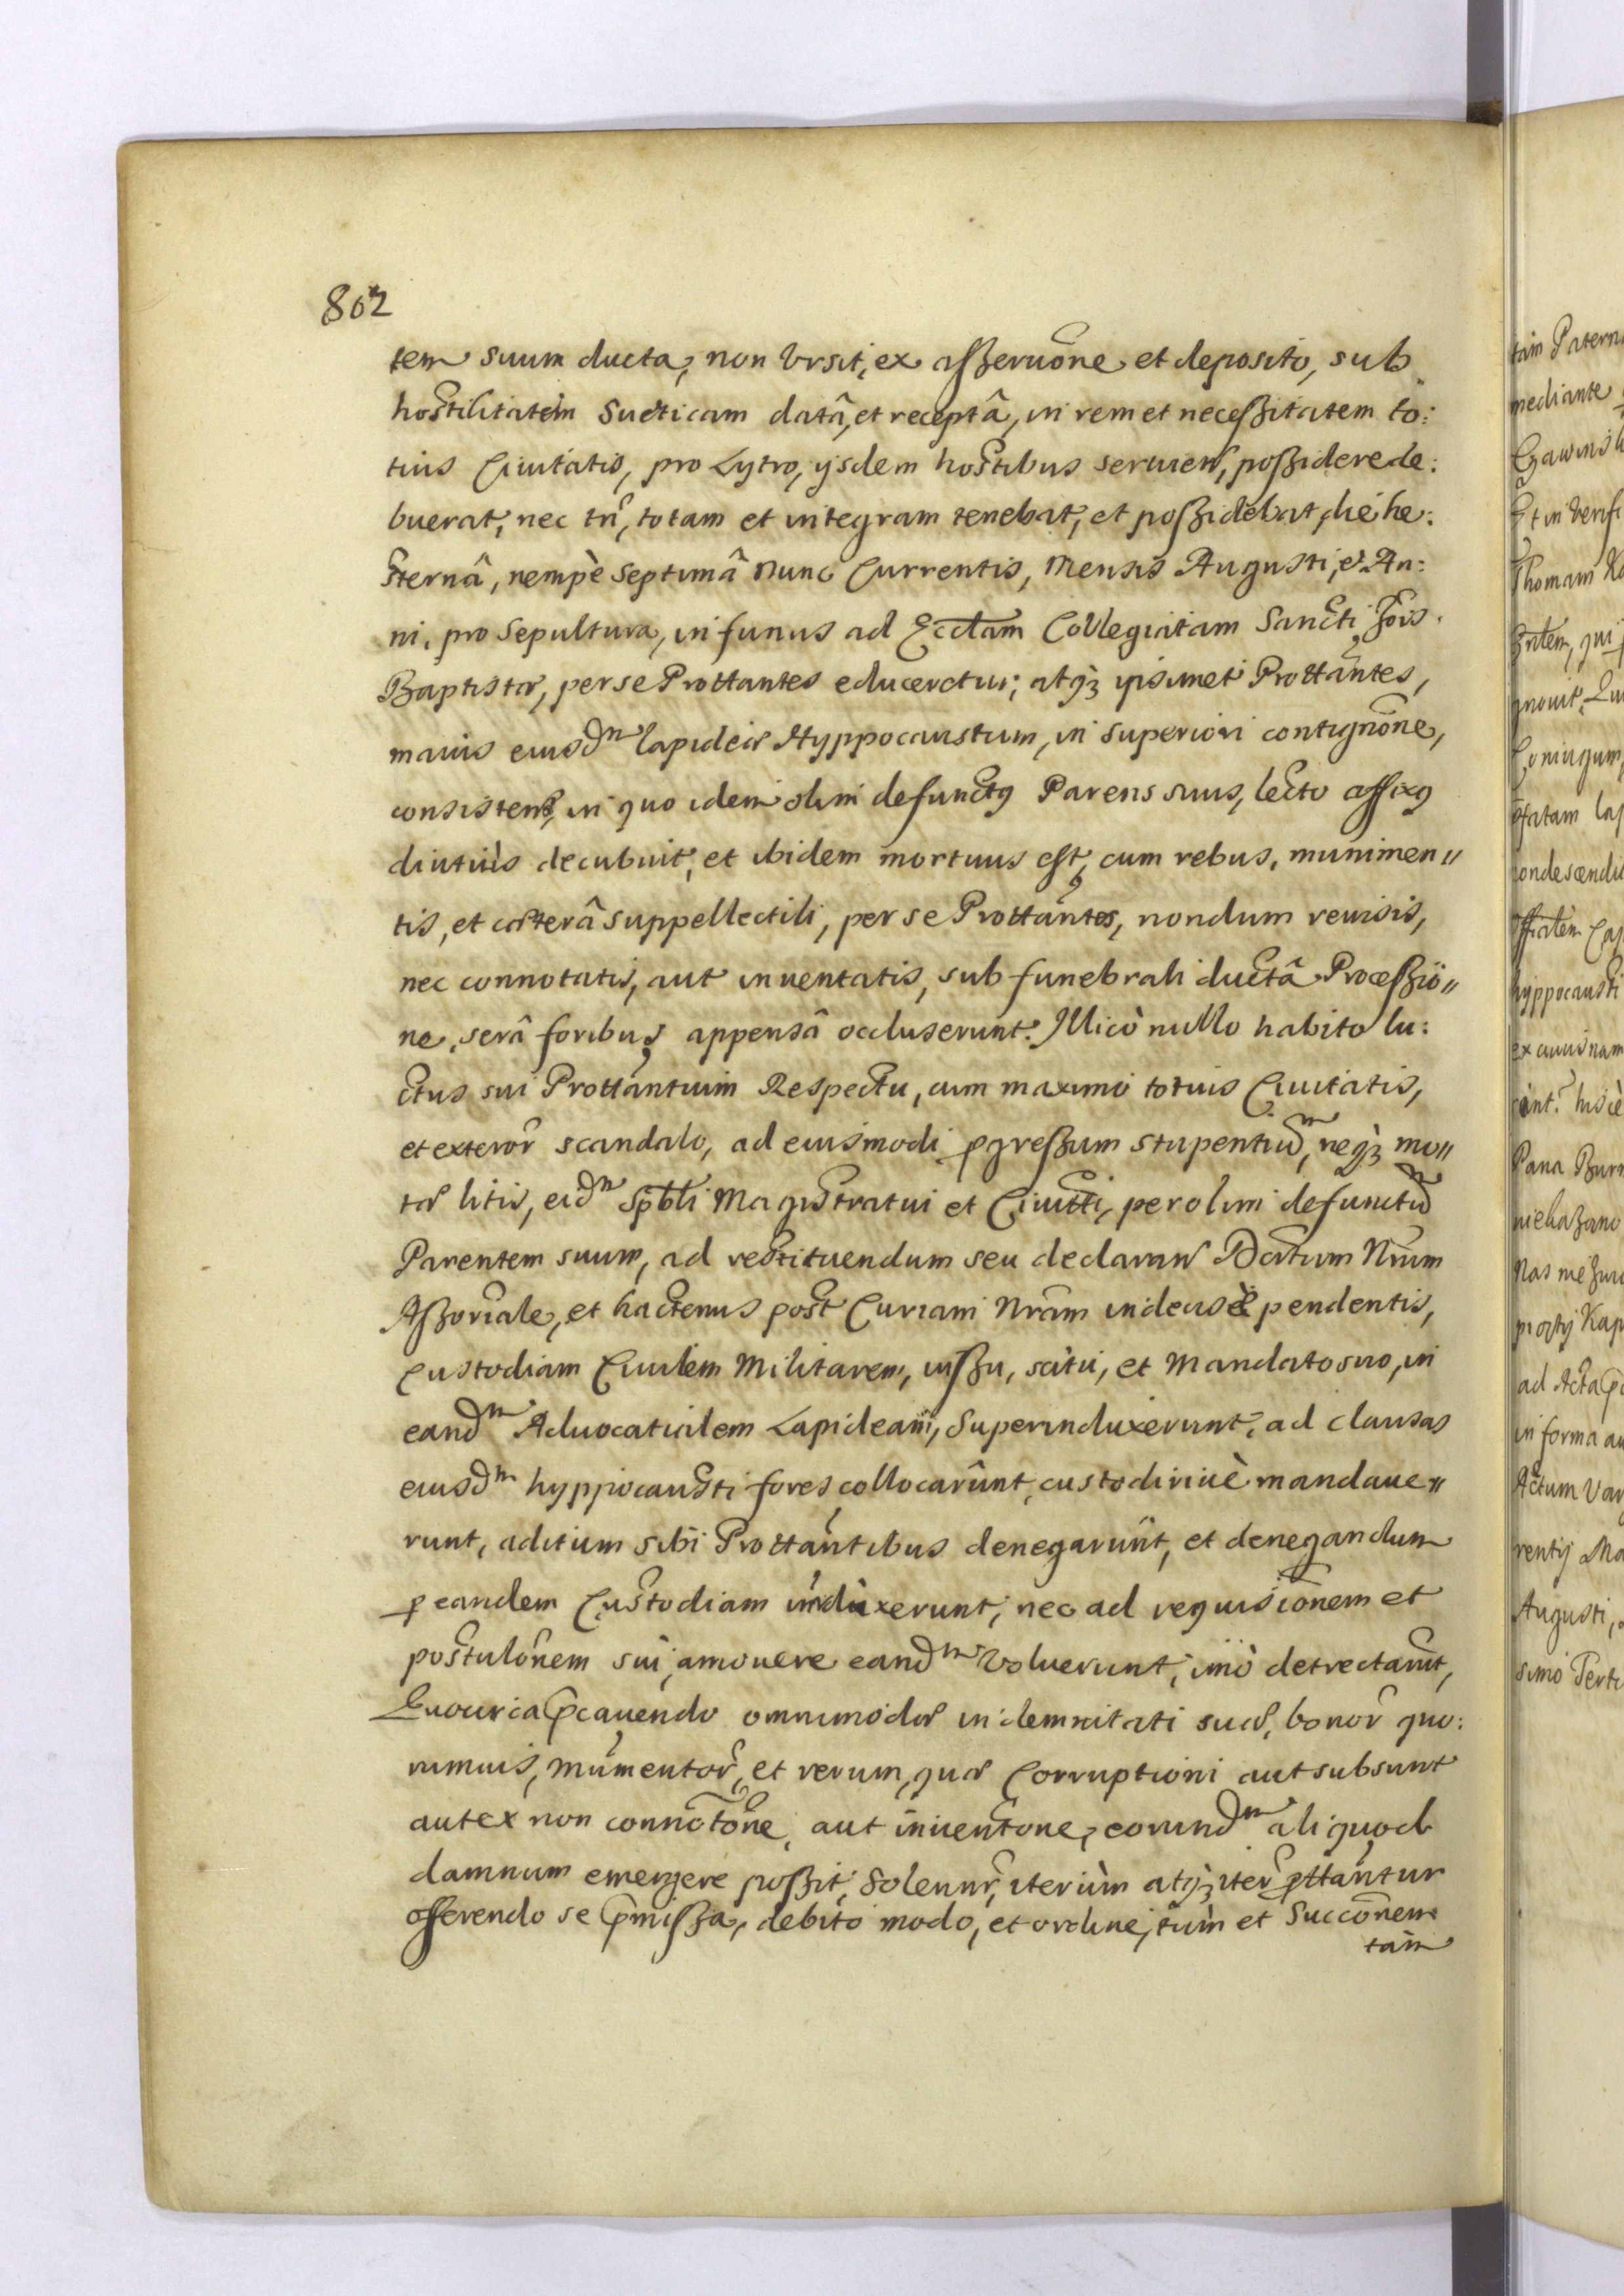 802
tem suum ducta, non Vrsit, ex aßeruõne et deposito, sub
hostilitatem Sueticam datâ, et receptâ, in rem et neceßitatem to:
tius Ciuitatis, pro Lytro, ysdem hostibus seruien, poßidere de:
buerat, nec tñ, totam et integram tenebat, et poßidebat, die he:
sternâ, nempè Septimâ nunc Currentis, Mensis Augusti, et An:
ni, pro Sepultura, in funus ad Ecctam Collegiatam Sancti Jois
Baptistæ, per se Prottantes educeretur; atqз ipsimet Prottantes,
mauis eiusdm lapideæ Hyppocaustum, in superiori contignõne,
consistens, in quo idem olim defunctq Parens suus, lecto affixq
diutiùs decubuit, et ibidem mortuus est, cum rebus, munimen〃
tis, et cæterâ suppellectili, per se Prottantes, nondum reuisis,
nec connotatis, aut inuentatis, sub funebrali ductâ Proceßio〃
ne, serâ foribus appensâ occluserunt. Illicò nullo habito lu:
ctus sui Prottantium Respectu, cum maximo totius Ciuitatis,
et exteror scandalo, ad eiusmodi pgreßum stupentiũm, neqз mo〃
tæ litis, eidm Spbli Magistratui et Ciuitti, per olim defunctũm
Parentem suum, ad restituendum seu declaran Dctum Nrum
Aßoriale, et hactenus post Curiam Nram indecisè pendentis,
Custodiam Ciuilem Militarem, iußu, scitu, et Mandato suo, in
eandm Aduocatialem Lapideam, Superinduxerunt, ad clausas
eiusdm hyppocausti fores collocarûnt, custodiriuè mandaue〃
runt, aditum sibi Prottantibus denegarunt, et denegandum
p eandem Custodiam induxerunt; nec ad requisionem et
postulõnem sui, amouere eandm Voluerunt, imò detrectarunt,
Quocirca pcauendo omnimodæ indemnitati suæ, bonor quo:
rumuis, Mumentor, et rerum, quæ Corruptioni aut subsunt
aut ex non connotõne, aut inuentone, eorundm aliquod
damnum emergere poßit, Solennr, iterùm atqз iter pttantur
offerendo se pmißa, debito modo, et ordine, tùm et Succonem
tam
tam Patern
mediante
Et in Verifi
Thomam
gnouit,
Coniugum,
pfatam lap
condescendi
hyppocausti
ex cuius nam
Pana Burm
ad Acta
in forma au
Actum Var
rentij Ma
Augusti,
simo Terti